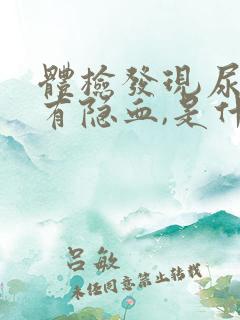 體檢發現尿
有隐血,是什
吕敏
未经同意禁止转载